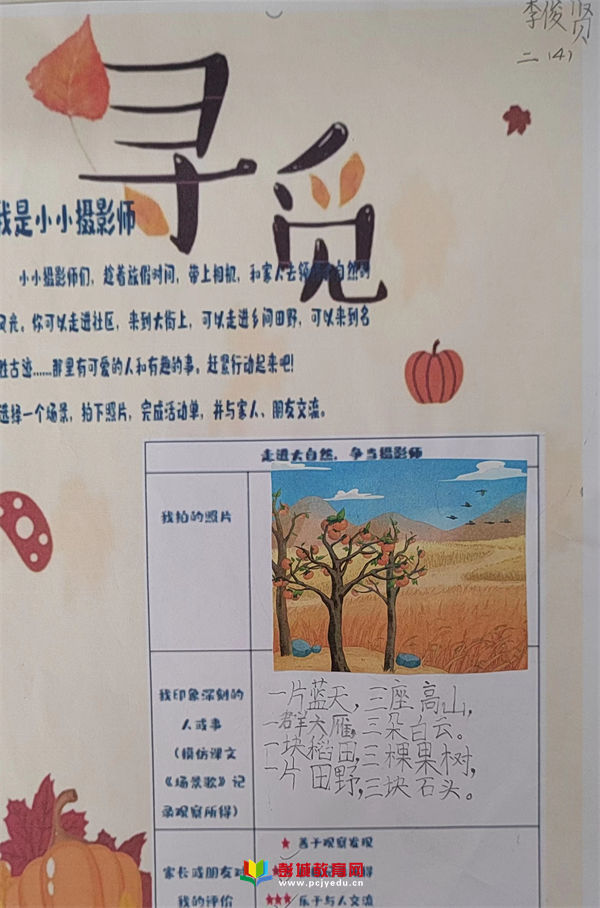 李俊贤
二（4）
寻觅
我是小小摄影师
小小摄影师们，趁着放假时间，带上相机，和家人去领
自然的
风光。你可以走进社区，来到大街上，可以走进乡间田野，可以来到名
胜古迹……那里有可爱的人和有趣的事。赶紧行动起来吧！
选择一个场景，拍下照片，完成活动单，并与家人、朋友交流。
走进大自然，争当摄影师
我拍的照片
我印象深刻的
人或事
（模仿课文
《场景歌》记
录观察所得）
一片蓝天，三座高山，
一群大雁，三朵白云。
一块稻田，三棵果树，
一片田野，三块石头。
家长或朋友对
我的评价
★ 善于观察发现
得
★★★ 乐于与人交流
彭城教育网
www.pcjyedu.cn